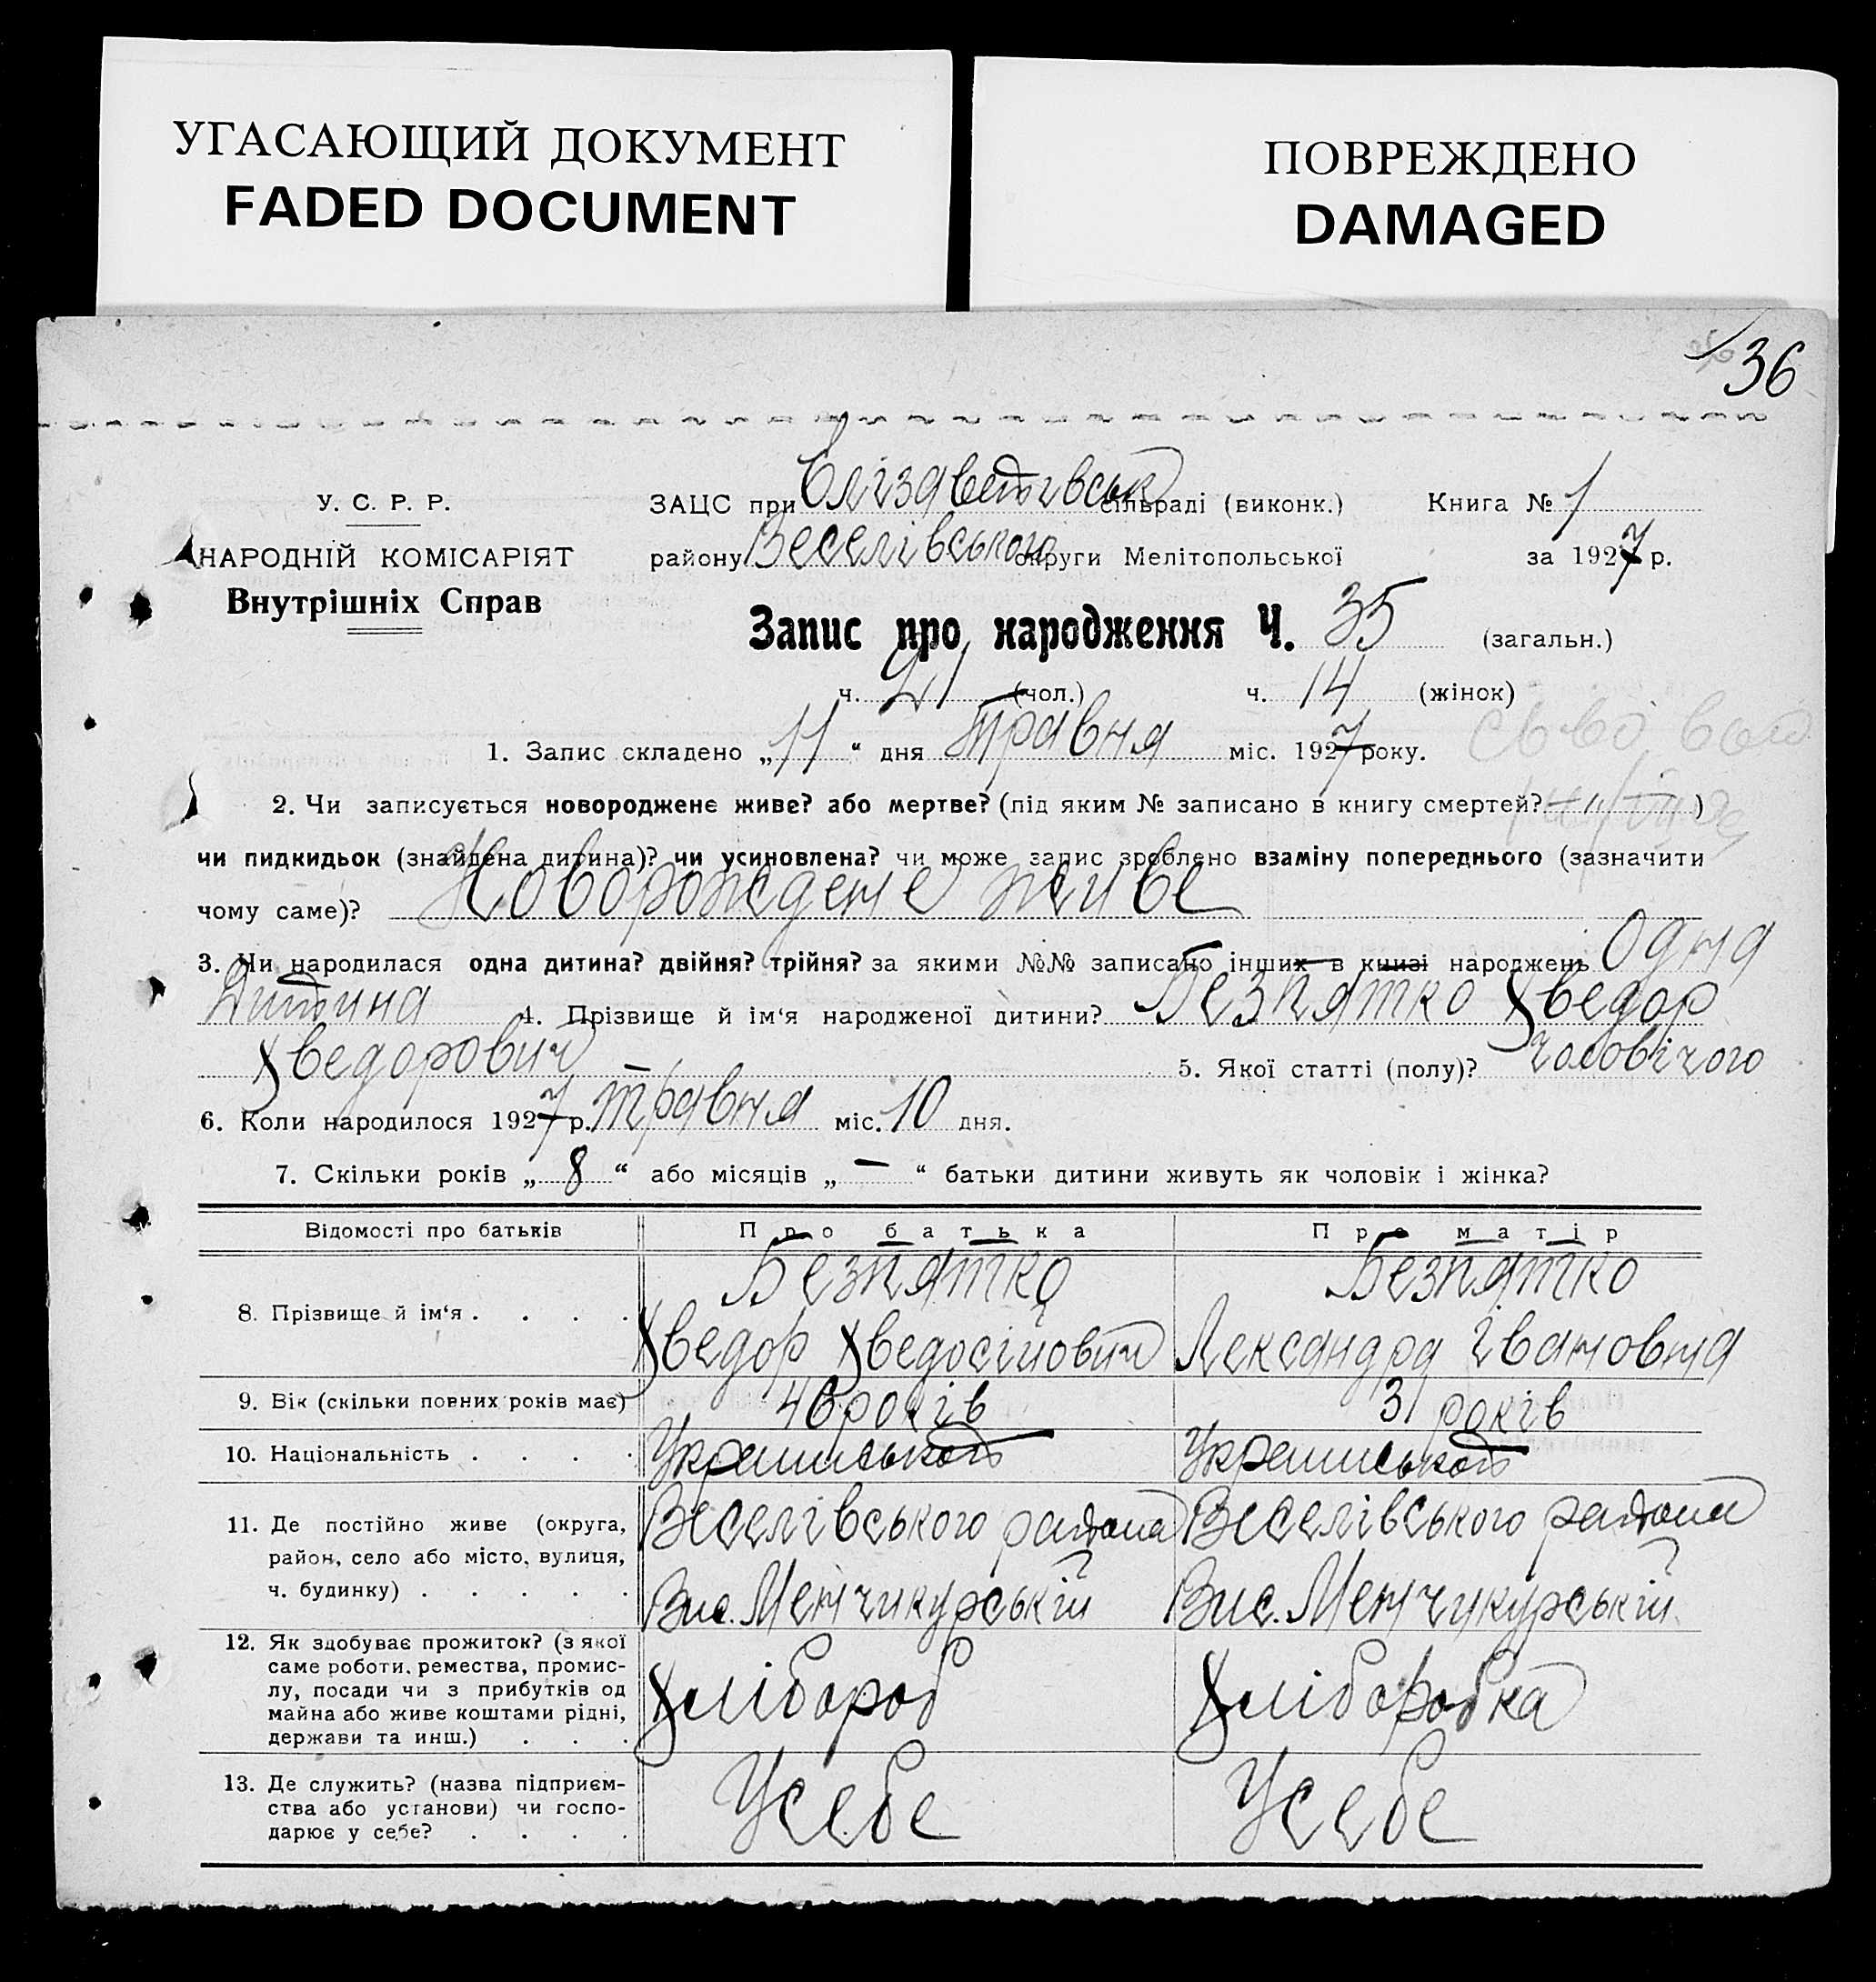 УГАСАЮЩИЙ ДОКУМЕНТ
FADED DOCUMENT
ПОВРЕЖДЕНО
DAMAGED
36
У. С. Р. Р.
НАРОДНІЙ КОМІСАРІЯТ
Внутрішніх Справ
ЗАЦС при Єлізаветівськ сільраді (виконк.) Книга № 1
району Веселівського округи Мелітопольської за 1927 р.
Запис про народження Ч. 35 (загальн.)
ч. 21 (чол.) ч. 14 (жінок)
1. Запис складено „11“ дня травня міс. 1927 року.
2. Чи записується новороджене живе? або мертве? (під яким № записано в книгу смертей? — „ — )
чи пидкидьок (знайдена дитина)? чи усиновлена? чи може запис зроблено взаміну попереднього (зазначити
чому саме)? Новорождене живе
3. Чи народилася одна дитина? двійня? трійня? за якими №№ записано інших в книзі народжень Одна
Дитина 4. Прізвище й ім‘я народженої дитини? Безпятко Хведор
Хведорович 5. Якої статті (полу)? чоловічого
6. Коли народилося 1927 р. травня міс. 10 дня.
7. Скільки років „8“ або місяців „—“ батьки дитини живуть як чоловік і жінка?
Відомості про батьків Про батька Про матір
8. Прізвище й ім‘я . . . . Безпятко Безпятко
Хведор Хведосійович Лександра Івановна
9. Вік (скільки повних років має) 46 років 31 років
10. Національність . . . . Української Української
11. Де постійно живе (округа,
район, село або місто, вулиця,
ч. будинку) . . . . .
Веселівського района Веселівського района
Вис. Менчикурській Вис. Менчукурській
12. Як здобуває прожиток? (з якої
саме роботи, ремества, промис-
лу, посади чи з прибутків од
майна або живе коштами рідні,
держави та инш.) . . .
Хлібороб Хліборобка
13. Де служить? (назва підприєм-
ства або установи) чи госпо-
дарює у себе? . . . .
Усебе Усебе